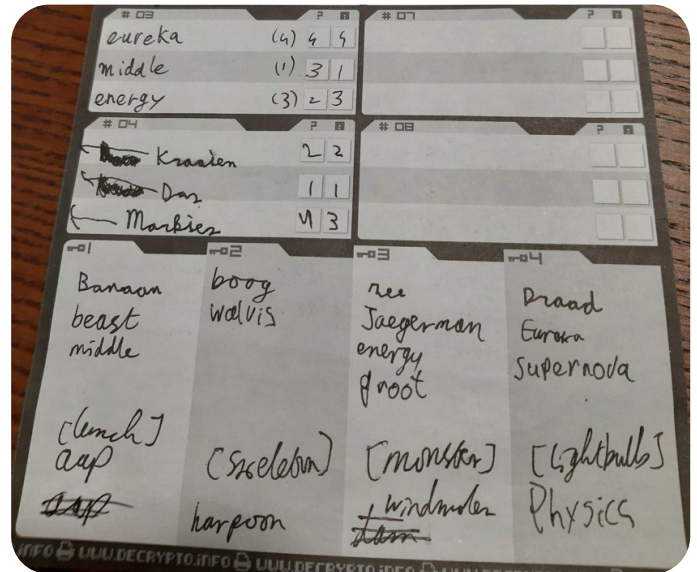 # 03
eureka (4) 4 4
middle (1) 3 1
energy (3) 2 3
# 07
# 04
Kraaien 2 2
Das 1 1
Markies 4 3
# 08
01
Banaan
beast
middle
[lunch]
aap
aap
02
boog
walvis
[skeleton]
harpoon
03
ree
Jaegerman
energy
groot
[monster]
windmolen
04
Draad
Eureka
Supernova
[lightbulb]
Physics
INFO WWW.DECRYPTO.INFO WWW.DECRYPTO.INFO WWW.DECRYPTO.INFO